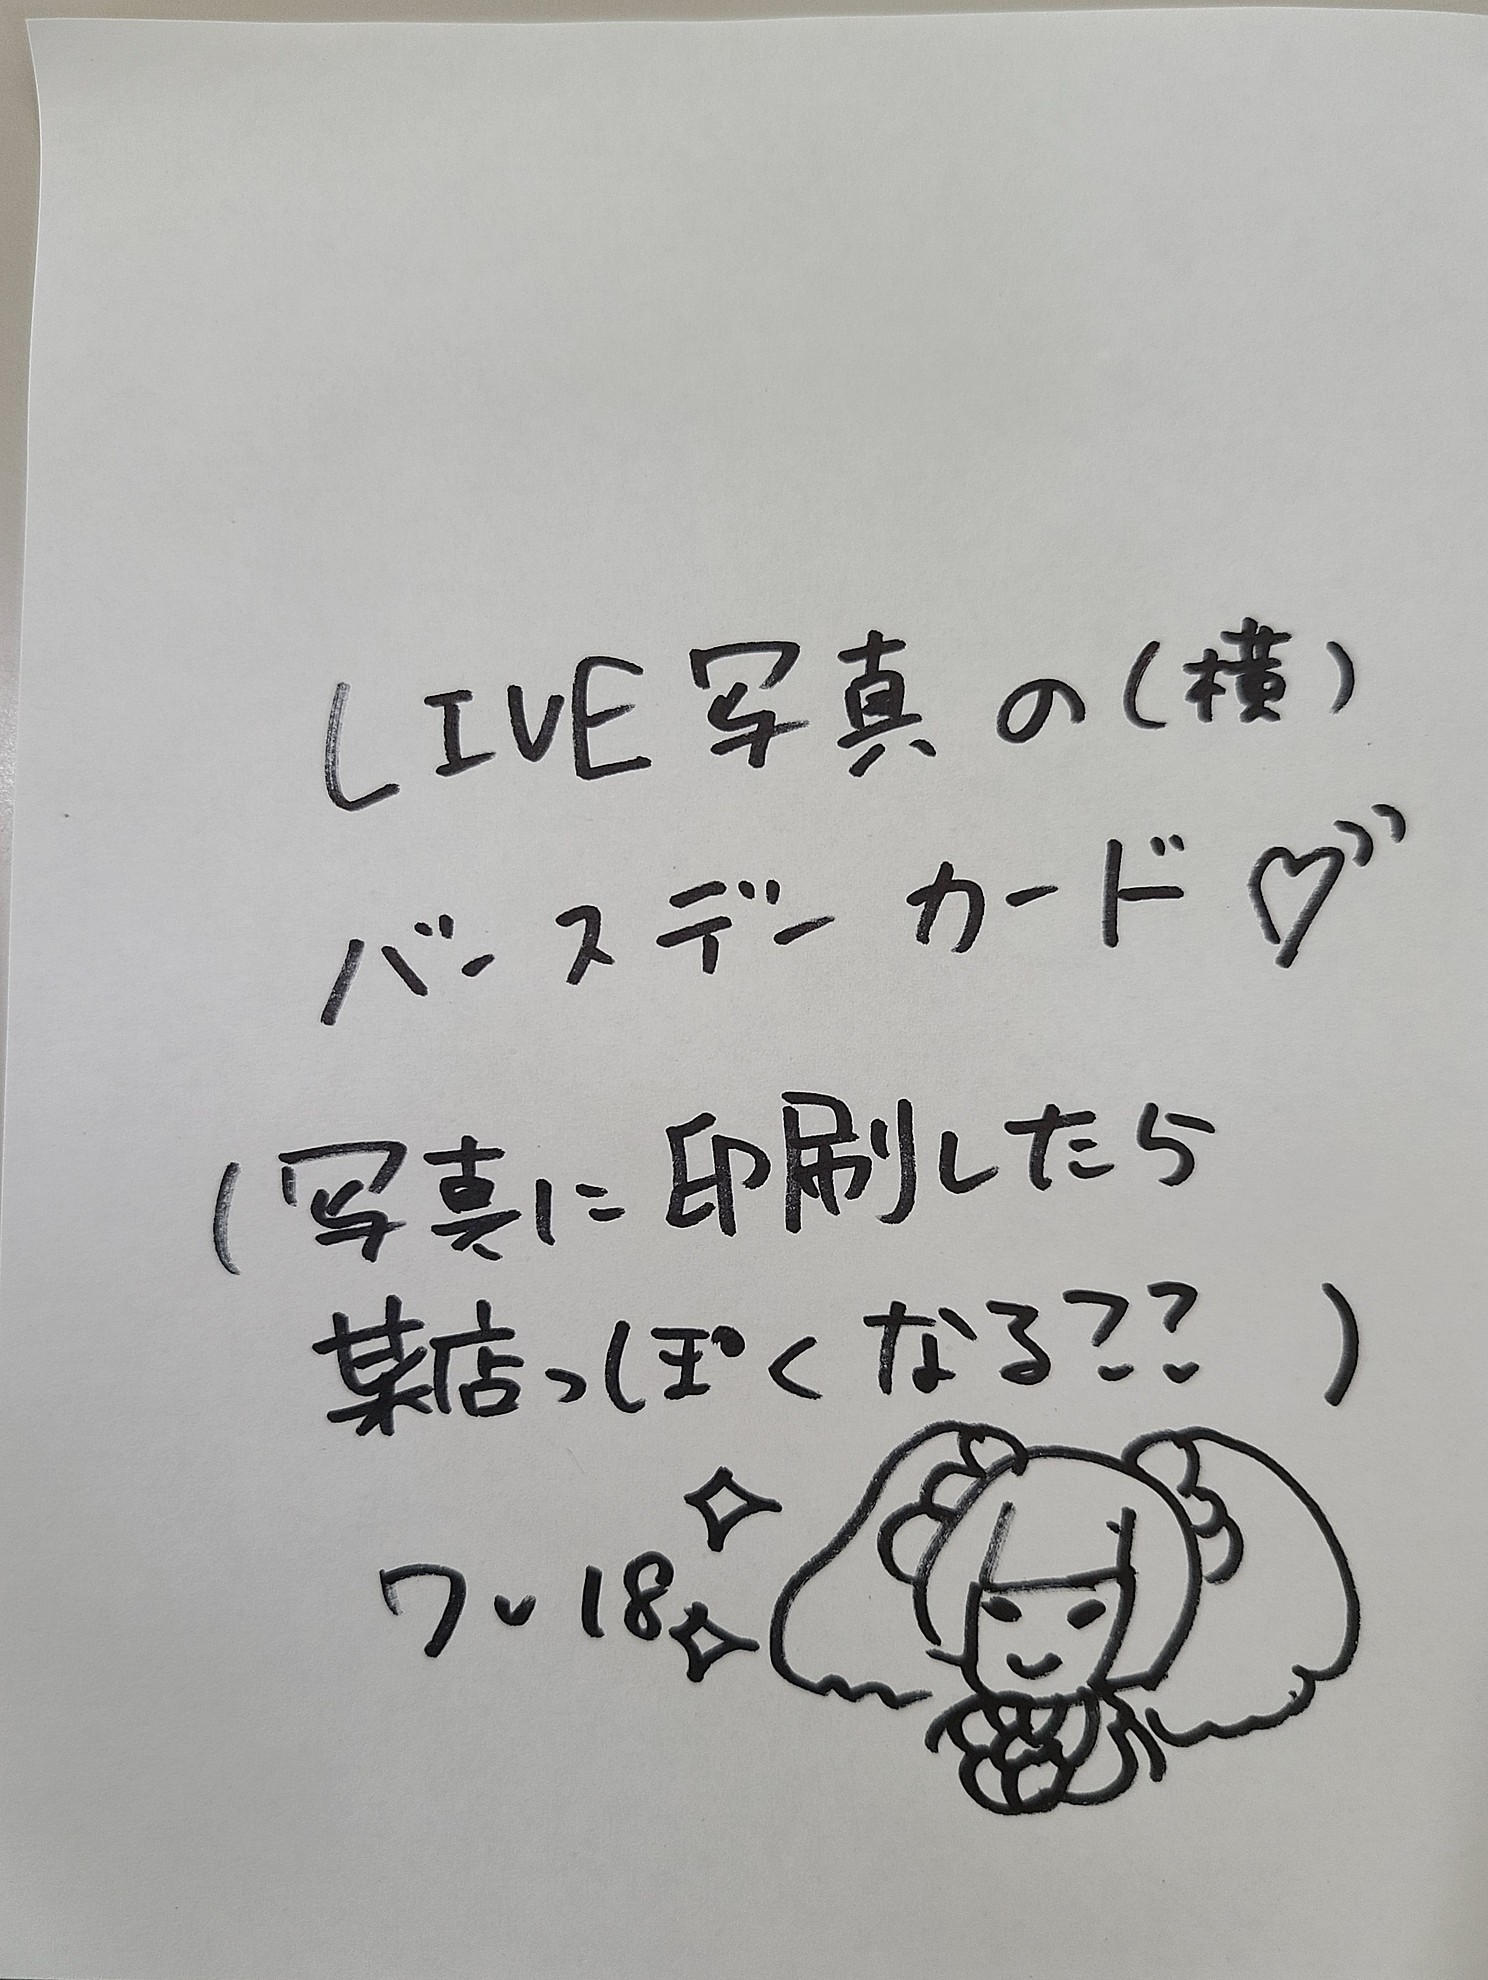 LIVE写真の(横)
バースデーカード♡
(写真に印刷したら
某店っぽくなる??)